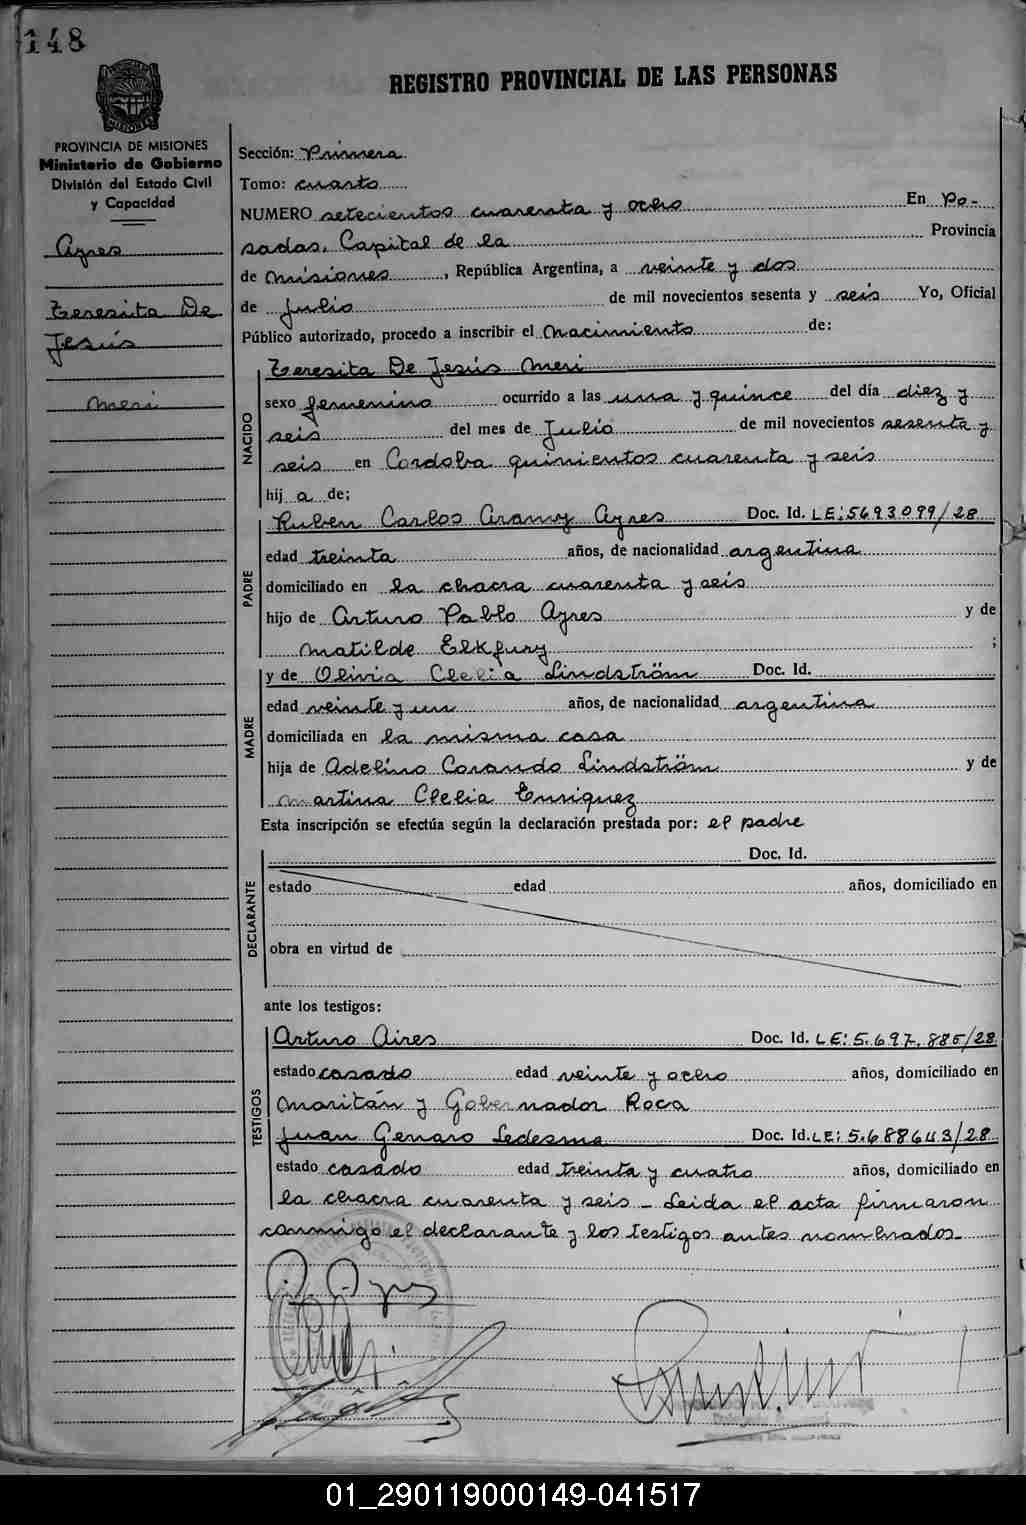 148
REGISTRO PROVINCIAL DE LAS PERSONAS
PROVINCIA DE MISIONES
Ministerio de Gobierno
División del Estado Civil
y Capacidad
Ayres
Teresita De
Jesús
Meri
Sección: Primera
Tomo: cuarto
NUMERO setecientos cuarenta y ocho En Po-
sadas, Capital de la Provincia
de Misiones, República Argentina, a veinte y dos
de Julio de mil novecientos sesenta y seis Yo, Oficial
Público autorizado, procedo a inscribir el Nacimiento de:
NACIDO
Teresita De Jesús Meri
sexo femenino ocurrido a las una y quince del día diez y
seis del mes de Julio de mil novecientos sesenta y
seis en Cordoba quinientos cuarenta y seis
hij a de;
PADRE
Ruben Carlos Ayres Doc. Id. LE: 5693099/28
edad treinta años, de nacionalidad argentina
domiciliado en la chacra cuarenta y seis
hijo de Arturo Pablo Ayres y de
Matilde Elkfury ;
MADRE
y de Olivia Clelia Lindström Doc. Id.
edad veinte y un años, de nacionalidad argentina
domiciliada en la misma casa
hija de Adelino Corando Lindström y de
Martina Clelia Enriquez
Esta inscripción se efectúa según la declaración prestada por: el padre
DECLARANTE
Doc. Id.
estado edad años, domiciliado en
obra en virtud de
ante los testigos:
TESTIGOS
Arturo Aires Doc. Id. LE: 5.697.885/28
estado casado edad veinte y ocho años, domiciliado en
Maritán y Gobernador Roca
Juan Genaro Ledesma Doc. Id. LE: 5.688643/28
estado casado edad treinta y cuatro años, domiciliado en
la chacra cuarenta y seis - Leida el acta firmaron
conmigo el declarante y los testigos antes nombrados-
01_290119000149-041517